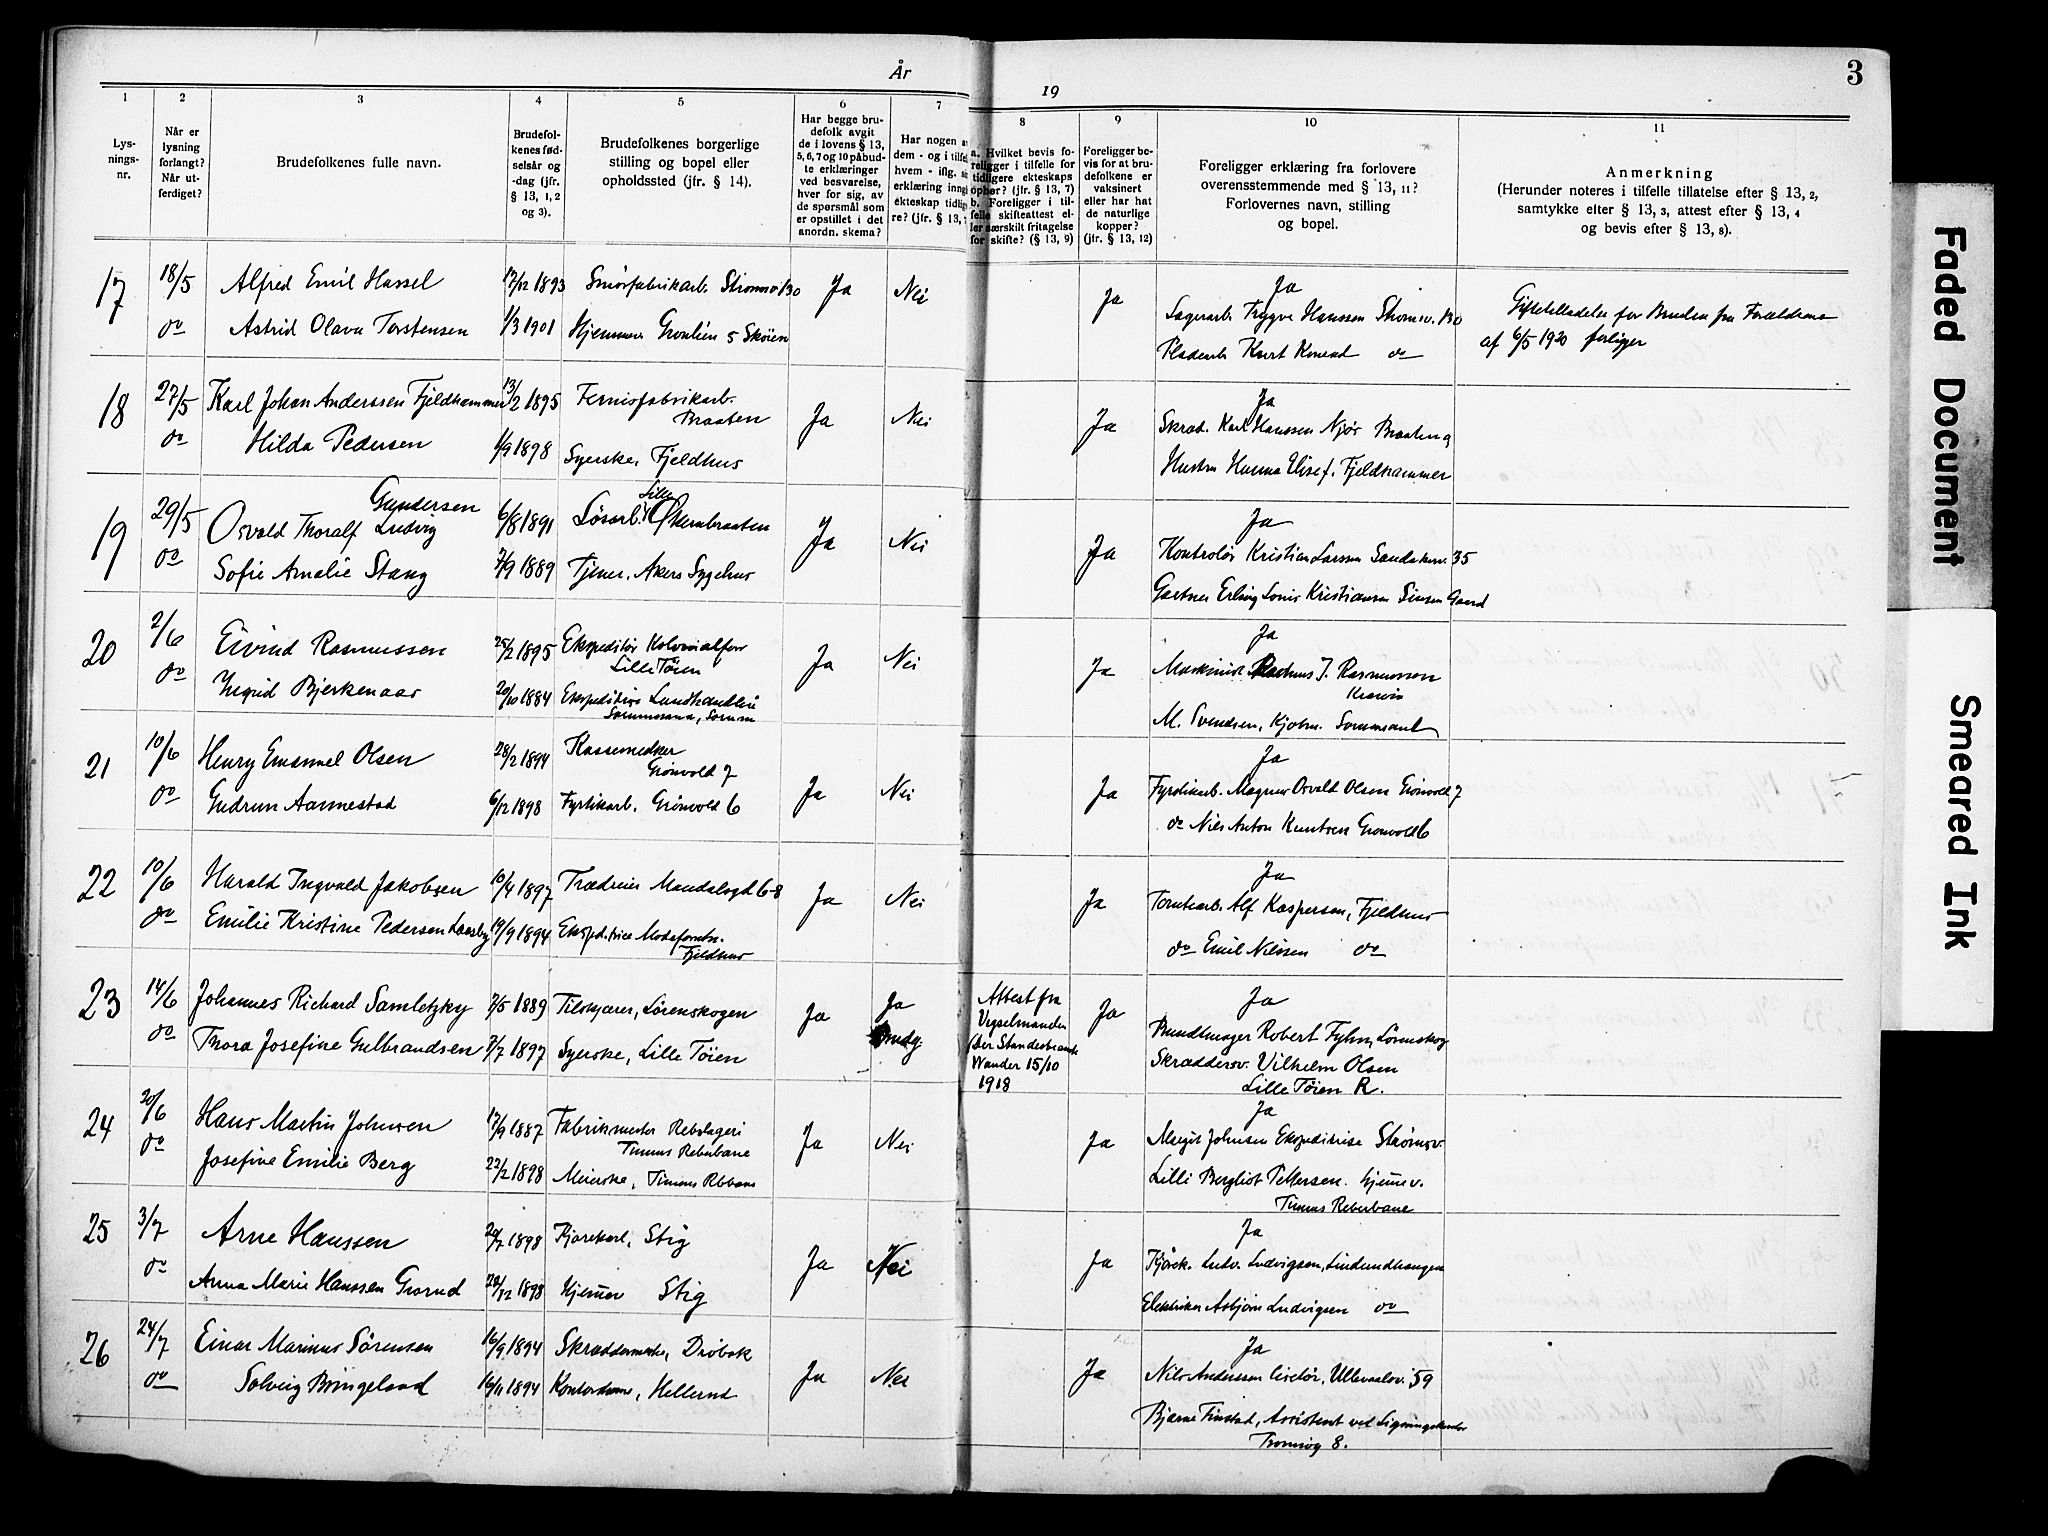 År
19
3
1
2
3
4
5
6
7
8
9
10
11
Lys-
nings-
nr.
Når er
lysning
forlangt?
Når ut-
ferdiget?
Brudefolkenes fulle navn.
Brudefol-
kenes fød-
selsår og
-dag (jfr.
§ 13, 1, 2
og 3).
Brudefolkenes borgerlige
stilling og bopel eller
opholdssted (jfr. § 14).
Har begge bru-
defolk avgit
de i lovens § 13,
5, 6, 7 og 10 påbud-
te erklæringer
ved besvarelse,
hver for sig, av
de spørsmål som
er opstillet i det
anordn. skema?
Har nogen a
dem - og i tilfel
hvem - iflg. si
erklæring inng
ekteskap tidli
re? (jfr. § 13,
a. Hvilket bevis fo-
religger i tilfelle for
tidligere ekteskaps
ophør? (jfr. § 13, 7)
b. Foreligger i til-
felle skifteattest el-
ler særskilt fritagelse
for skifte? (§ 13, 9)
Foreligger be-
vis for at bru-
defolkene er
vaksinert
eller har hat
de naturlige
kopper?
(jfr. § 13, 12)
Foreligger erklæring fra forlovere
overensstemmende med § 13, 11?
Forlovernes navn, stilling
og bopel.
Anmerkning
(Herunder noteres i tilfelle tillatelse efter § 13, 2,
samtykke efter § 13, 3, attest efter § 13, 4
og bevis efter § 13, 8).
17 18/5 Alfred Emil Hassel 17/12 1893 Smörfabrikarb. Strömsv. 130 Ja Nei Ja Ja
do Astrid Olava Torstensen 1/3 1901 Hjemmev Gronlien 5 Skøien
Sagerarb. Trygve Hanssen Stromsv. 130
Pladearb Knut Konrad do
Giftetilladelse for Bruden fra Forældrene
af 6/5 1920 forligger
18 27/5 Karl Johan Anderssen Fjeldhammer 13/2 1895 Fernisfabrikarb.
Braaten Ja Nei Ja Ja
do Hilda Pedersen 1/9 1898 Syerske, Fjeldhus
Skræd. Karl Hanssen Njør Braaten
Hustru Hanna Elise f. Fjeldhammer
19 29/5 Osvald Thoralf Ludvig Gundersen 6/8 1891 Løsarb. Lille Økernbraaten Ja Nei Ja Ja
do Sofie Amalie Stang 7/9 1889 Tjener, Akers Sygehus
Kontrolør Kristian Larssen Sandakerv. 35
Gartner Erling Louis Kristiansen Sinsen Gaard
20 2/6 Eivind Rasmussen 25/2 1895 Ekspeditör Kolonialforr
Lille Töien Ja Nei Ja Ja
do Ingrid Bjerkenaas 20/10 1884 Ekspeditrise Landhandleri
Maskinist Rasmus J. Rasmussen
M. Svendsen,
21 10/6 Henry Emanuel Olsen 28/2 1894 Kassemedker
Grönvold 7 Ja Nei Ja Ja
do Gudrun Aannestad 6/12 1898 Fyrstikarb. Grönvold 6
Fyrstikarb. Magnus Osvald Olsen Grönvold 7
do Nils Anton Knutsen Gronvold 6
22 10/6 Harald Ingvald Jakobsen 10/4 1897 Trædreier Maudalsgd 6-8 Ja Nei Ja Ja
do Emilie Kristine Pedersen Laasby 19/9 1894 Ekspeditrice Modeforretn.
Fjeldhus
Tomtearb. Alf Kaspersen, Fjeldhus
do Emil Nilssen do
23 14/6 Johannes Richard Samletzky 7/5 1889 Tilskjærer, Lörenskogen Ja Ja Ja Ja
do Thora Josefine Gulbrandsen 7/7 1897 Syerske, Lille Töien Brudg
Attest fra
Vigselmanden
(Der Standesbeamte
Wander 15/10
1918
Robert Fyhn, Lörenskog
Skræddersv. Vilhelm Olsen
Lille Töien R.
24 20/6 Hans Martin Johnsen 17/9 1887 Fabrikmester Rebslageri
Timms Reberbane Ja Nei Ja Ja
do Josefine Emilie Berg 22/2 1898 Meierske, Timms Rbbane
Margit Johnsen Ekspeditrise Strömsv.
Lilli Bergliot Pettersen. hjemmev.
Timms Reberbane
25 3/7 Arne Hanssen 20/7 1898 Kjørekarl, Stig Ja Nei Ja Ja
do Anna Marie Hanssen Grorud 20/12 1898 Hjemmev Stig
Kjörek. Ludv. Ludvigsen, Linderudhaugen
Elektriker Asbjörn Ludvigsen do
26 24/7 Einar Marinus Sörensen 16/9 1894 Skræddermester, Dröbak Ja Nei Ja Ja
do Solveig Bringeland 16/11 1894 Kontordame, Hellerud
Nils Anderssen Cicelör, Ullevaalsv. 59
Bjarne Finstad, Assistent ved Ligningskontor
Tromsøg 8.
Faded Document
Smeared Ink